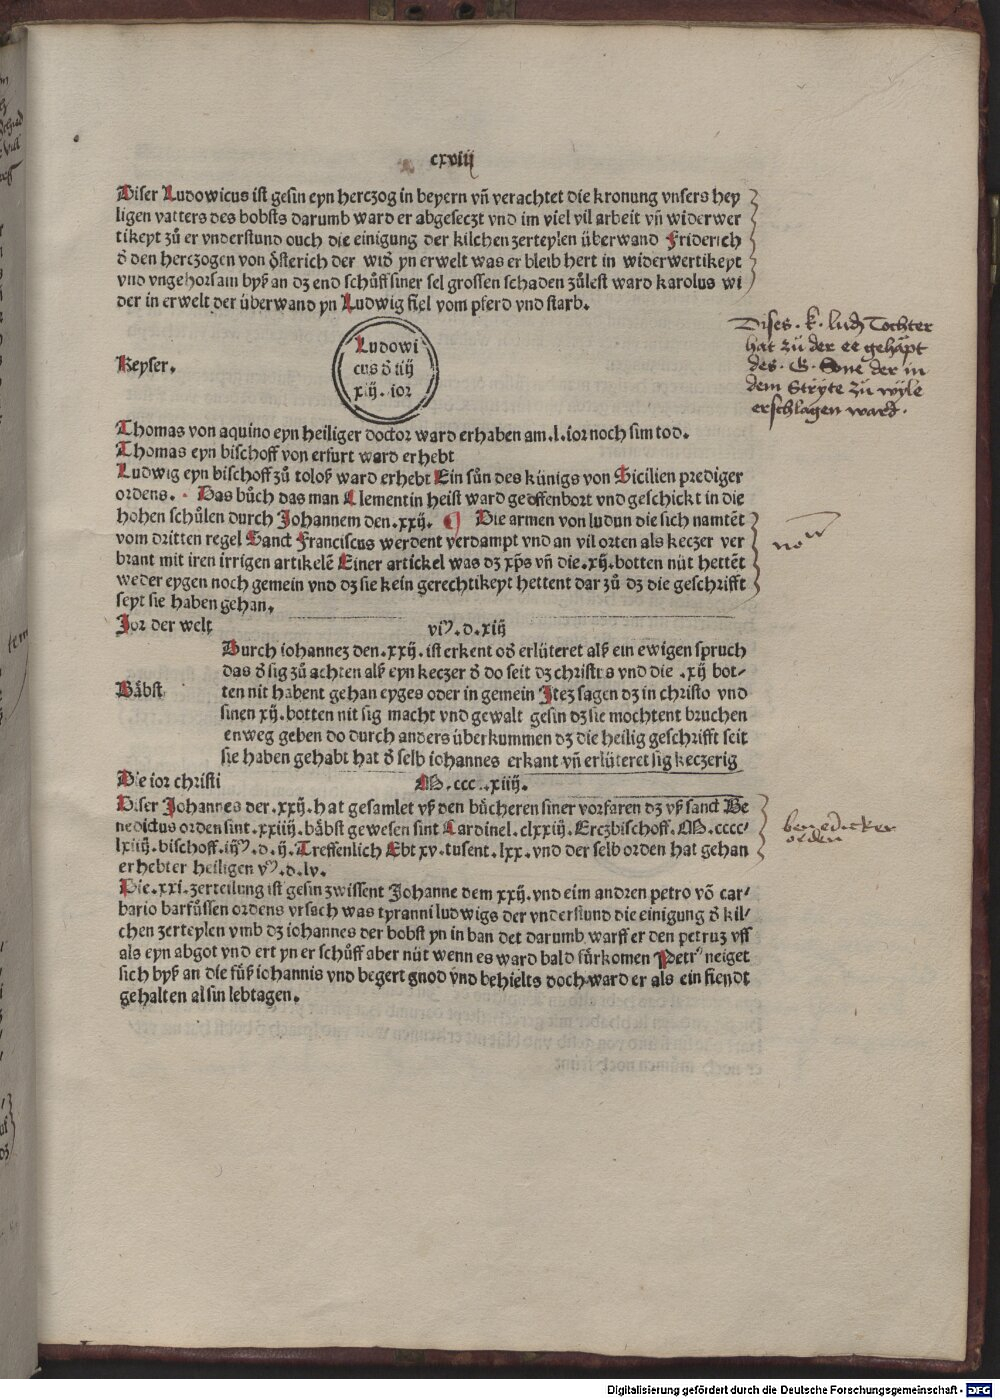 cxviij
Diser Ludowicus ist gesin eyn hertzog in beyern vñ verachtet die kronung vnsers hey
ligen vatters des bobsts darumb ward er abgeseczt vnd im viel vil arbeit vñ widerwer
tikeyt zů er vnderstund ouch die einigung der kilchen zerteylen überwand Friderich
den hertzogen von österich der wid yn erwelt was er bleib hert in widerwertikeyt
vnd vngehorsam byß an dz end schůff siner sel grossen schaden zůlest ward karolus wi
der in erwelt der überwand yn Ludwig fiel vom pferd vnd starb.
Keyser.
Ludowi
cus đ iiij
xiij. ior
Dises . k . luđ Tochter
hat zů der ee gehäpt
des . G . Sone der in
dem Stryte zů wyle
erschlagen ward .
Thomas von aquino eyn heiliger doctor ward erhaben am .l. ior noch sim tod.
Thomas eyn bischoff von erfurt ward erhebt
Ludwig eyn bischoff zů toloß ward erhebt Ein sůn des künigs von Sicilien prediger
ordens. Das bůch das man Clementin heist ward geoffenbort vnd geschickt in die
hohen schůlen durch Johannem den .xxij. ¶ Die armen von ludun die sich namtēt
vom dritten regel Sanct Franciscus werdent verdampt vnd an vil orten als keczer ver
brant mit iren irrigen artikelē Einer artickel was dz xp̄s vñ die .xij. botten nüt hettēt
weder eygen noch gemein vnd dz sie kein gerechtikeyt hettent dar zů dz die geschrifft
seyt sie haben gehan.
Jor der welt
vi⁹.d.xiij
Durch iohannez den .xxij. ist erkent od erlüteret alß ein ewigen spruch
das đ sig zů achten alß eyn keczer đ do seit dz christus vnd die .xij bot-
ten nit habent gehan eyges oder in gemein Jtez sagen dz in christo vnd
sinen xij. botten nit sig macht vnd gewalt gesin dz sie mochtent bruchen
enweg geben do durch anders überkummen dz die heilig geschrifft seit
sie haben gehabt hat đ selb iohannes erkant vñ erlüteret sig keczerig
Bäbst
Die ior christi
M. ccc .xiiij.
Diser Johannes der .xxij. hat gesamlet vß den bůcheren siner vorfaren dz vß sanct Be
nedictus orden sint .xxiiij. bäbst gewesen sint Cardinel .clxxiij. Erczbischoff .M.cccc/
lxiiij. bischoff .iij⁹.d.ij. Treffenlich Ebt xv. tusent .lxx. vnd der selb orden hat gehan
erhebter heiligen v⁹.d.lv.
benedicker
orden
Die .xxi. zerteilung ist gesin zwissent Johanne dem xxij. vnd eim andren petro võ car/
bario barfůssen ordens vrsach was tyranni ludwigs der vnderstund die einigung đ kil/
chen zerteylen vmb dz iohannes der bobst yn in ban det darumb warff er den petruz vff
als eyn abgot vnd ert yn er schůff aber nüt wenn es ward bald fürkomen Petr⁹ neiget
sich byß an die fůß iohannis vnd begert gnod vnd behielts doch ward er als ein fiendt
gehalten al sin lebtagen.
Digitalisierung gefördert durch die Deutsche Forschungsgemeinschaft - DFG